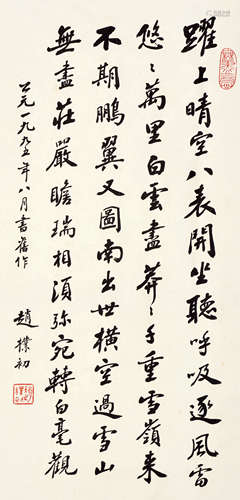 躍上晴空八表開坐聽呼吸逐風雷
悠〻萬里白雲盡莽〻千重雪嶺來
不期鵬翼又圖南出世橫空過雪山
無盡莊嚴瞻瑞相須弥宛轉白毫觀
公元一九九五年八月書舊作
趙樸初